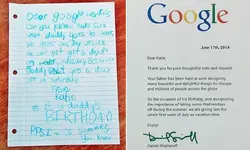 Dear google worker
Can you please make sure
when daddy goes to work
he gets one day off
he can get a day off
on
only
day off
From
Katie
P.S. It is daddy's
BIRTHDAY!
P.P.S. It is summer
you know
Google
June 17th, 2014
Dear Katie,
Thank you for your thoughtful note and request.
Your father has been hard at work designing
many beautiful and delightful things for Google
and millions of people across the globe.
On the occasion of his Birthday, and recognizing
the importance of taking some Wednesdays
off during the summer, we are giving him the
whole first week of July as vacation time.
Enjoy!
Daniel Shiplacoff